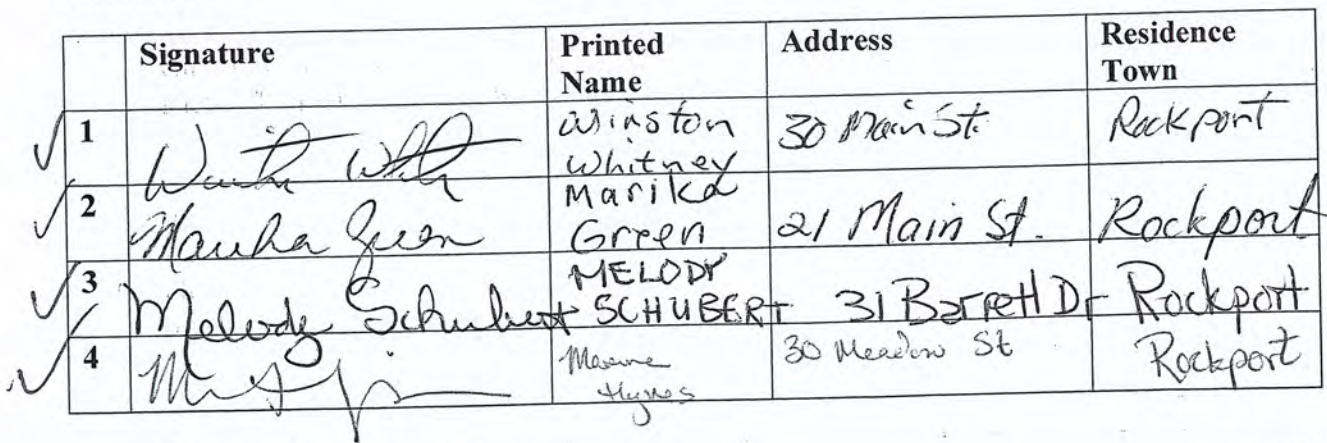 Signature Printed Name Address Residence Town
1 Winston Whitney 30 Main St. Rockport
2 Marika Green Marika Green 21 Main St. Rockport
3 Melody Schubert MELODY SCHUBERT 31 Barrett Dr Rockport
4 Hynes 30 Meadow St Rockport